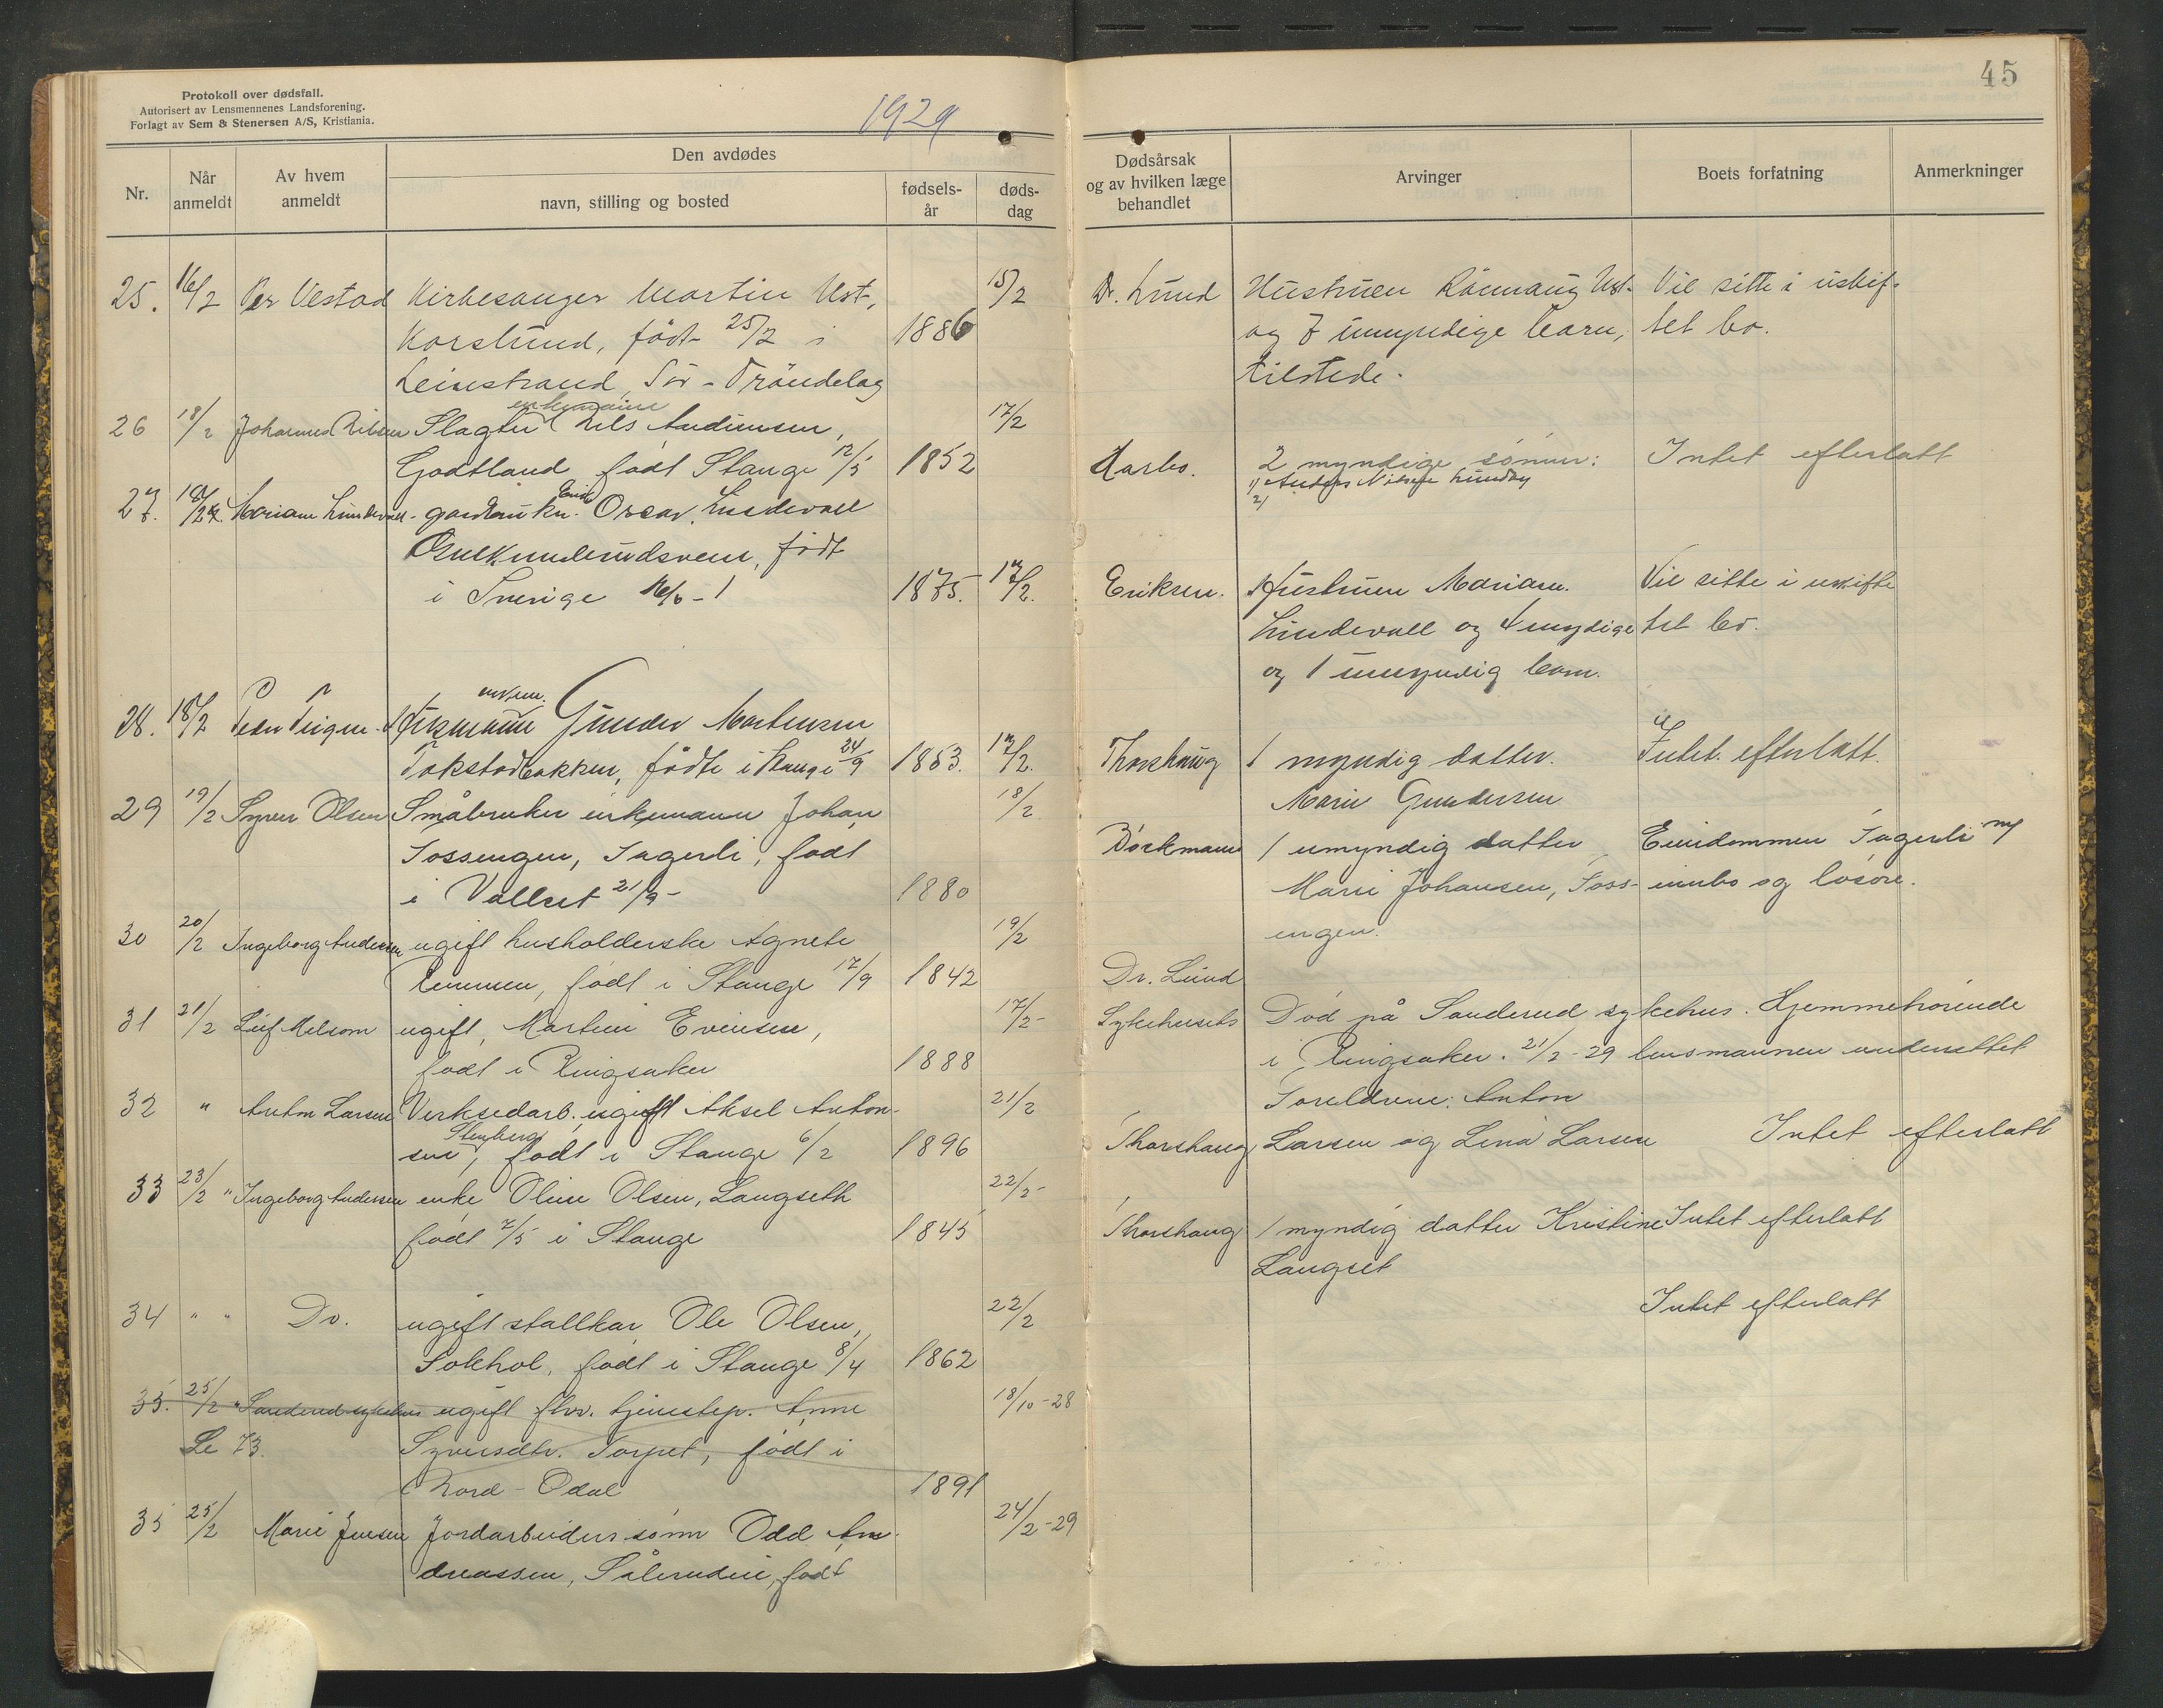 45
Protokoll over dødsfall.
Autorisert av Lensmennenes Landsforening.
Forlagt av Sem & Stenersen A/S, Kristiania.
1929
Nr.
Når anmeldt
Av hvem anmeldt
Den avdødes
navn, stilling og bosted
fødsels-år
døds-dag
Dødsårsak og av hvilken læge behandlet
Arvinger
Boets forfatning
Anmerkninger
25. 16/2 Per Vestad Kirkesanger Martin Ust- 15/2 Dr. Lund Hustruen Rønnaug Ust- Vil sitte i uskif-
Korslund, født 25/2 i 1886 og 7 umyndige barn, tet bo.
Leinstrand, Sør-Trøndelag tilstede.
enkemann
26 18/2 Johannes Nilsen Slagter Nils Andersen, 17/2
Godtland født Stange 12/5 1852 Aarbo. 2 myndige sønner: Intet efterlatt
1) Anders Nilsen
2)
27. 18/2 Mariane Lindevall gardbruker Oscar Lindevall
født
i Sverige 16/6 - 1 1875. 17/2. Eriksen. Hustruen Mariane Vil sitte i uskifte
Lindevall og 4 myndige tet bo.
og 1 umyndig barn.
28. 18/2 Peder Teigen Gunder Mortensen
Tokstadbakken, født i Stange 24/9 1853. 17/2. Thorshaug 1 myndig datter. Intet efterlatt.
Marie Gundersen
29 19/2 Syver Olsen Småbruker enkemann Johan 18/2
Fossengen, Fagerli, født Børkmann 1 umyndig datter Eiendommen Fagerli m/
i Vallset 21/9 - 1880 Marie Johansen, Foss- innbo og løsøre.
engen.
30 20/2 Ingeborg Andersen ugift husholderske Agnete 19/2
Remmen, født i Stange 17/9 1842 Dr. Lund
31 21/2 Leif Melsom ugift, Martin Evensen, 17/2 - Sykehusets Død på Sanderud sykehus. Hjemmehørende
født i Ringsaker 1888 i Ringsaker. 21/2-29 lensmannen underrettet
32 " Anton Larsen Verksedarb. ugift Aksel Anton- 21/2 Foreldrene: Anton
Stenberg
sen, født i Stange 6/2 1896 Thorshaug Larsen og Lina Larsen Intet efterlatt
33 23/2 " Ingeborg Andersen enke Oline Olsen, Langseth 22/2 -
født 7/5 i Stange 1845 Thorshaug 1 myndig datter Kristine Intet efterlatt
Langset
34 " " Do. ugift stallkar Ole Olsen, 22/2 Intet efterlatt
født i Stange 8/4 1862
35. 25/2 " Sanderud sykehus ugift fhv. tjenestep. Anne 18/10-28
Se 73. Syversdtr. Torpet, født i
Nord-Odal 1891
35 25/2 Marie Jensen Jordarbeiders sønn Odd An- 24/2-29
dreassen, født